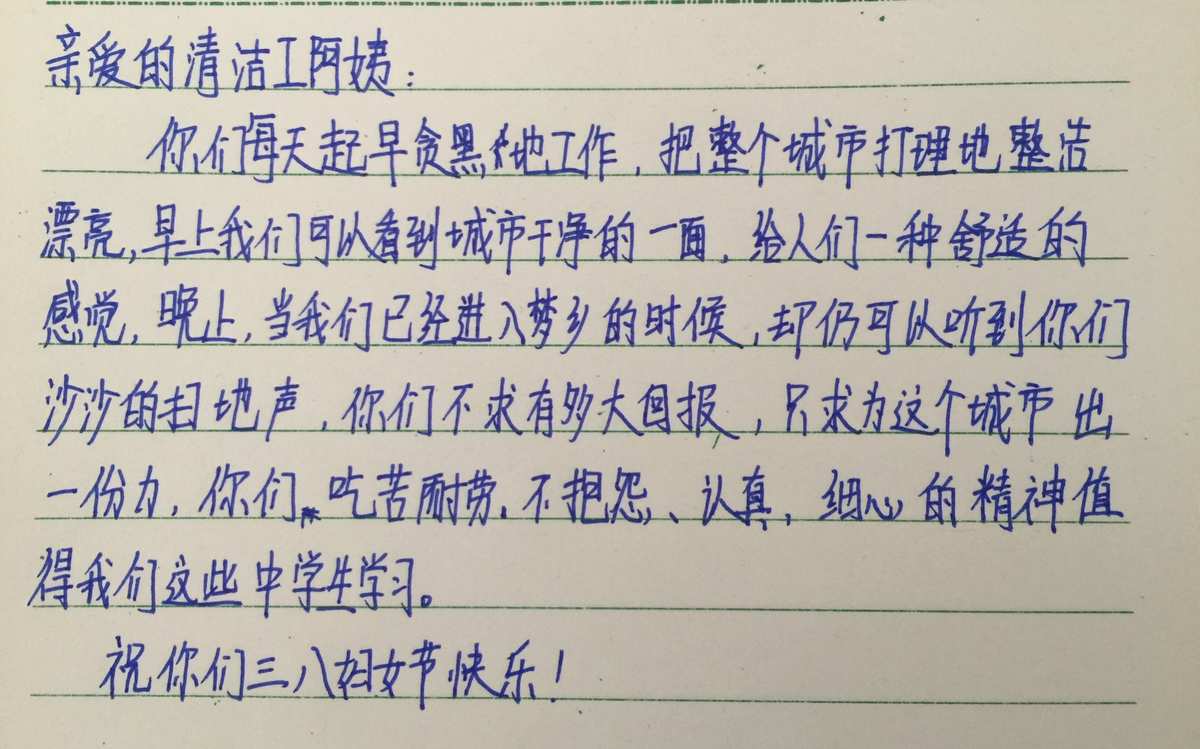 亲爱的清洁工阿姨：
你们每天起早贪黑地工作，把整个城市打理地整洁
漂亮，早上我们可以看到城市干净的一面，给人们一种舒适的
感觉，晚上，当我们已经进入梦乡的时候，却仍可以听到你们
沙沙的扫地声，你们不求有多大回报，只求为这个城市出
一份力，你们吃苦耐劳，不抱怨、认真，细心的精神值
得我们这些中学生学习。
祝你们三八妇女节快乐！